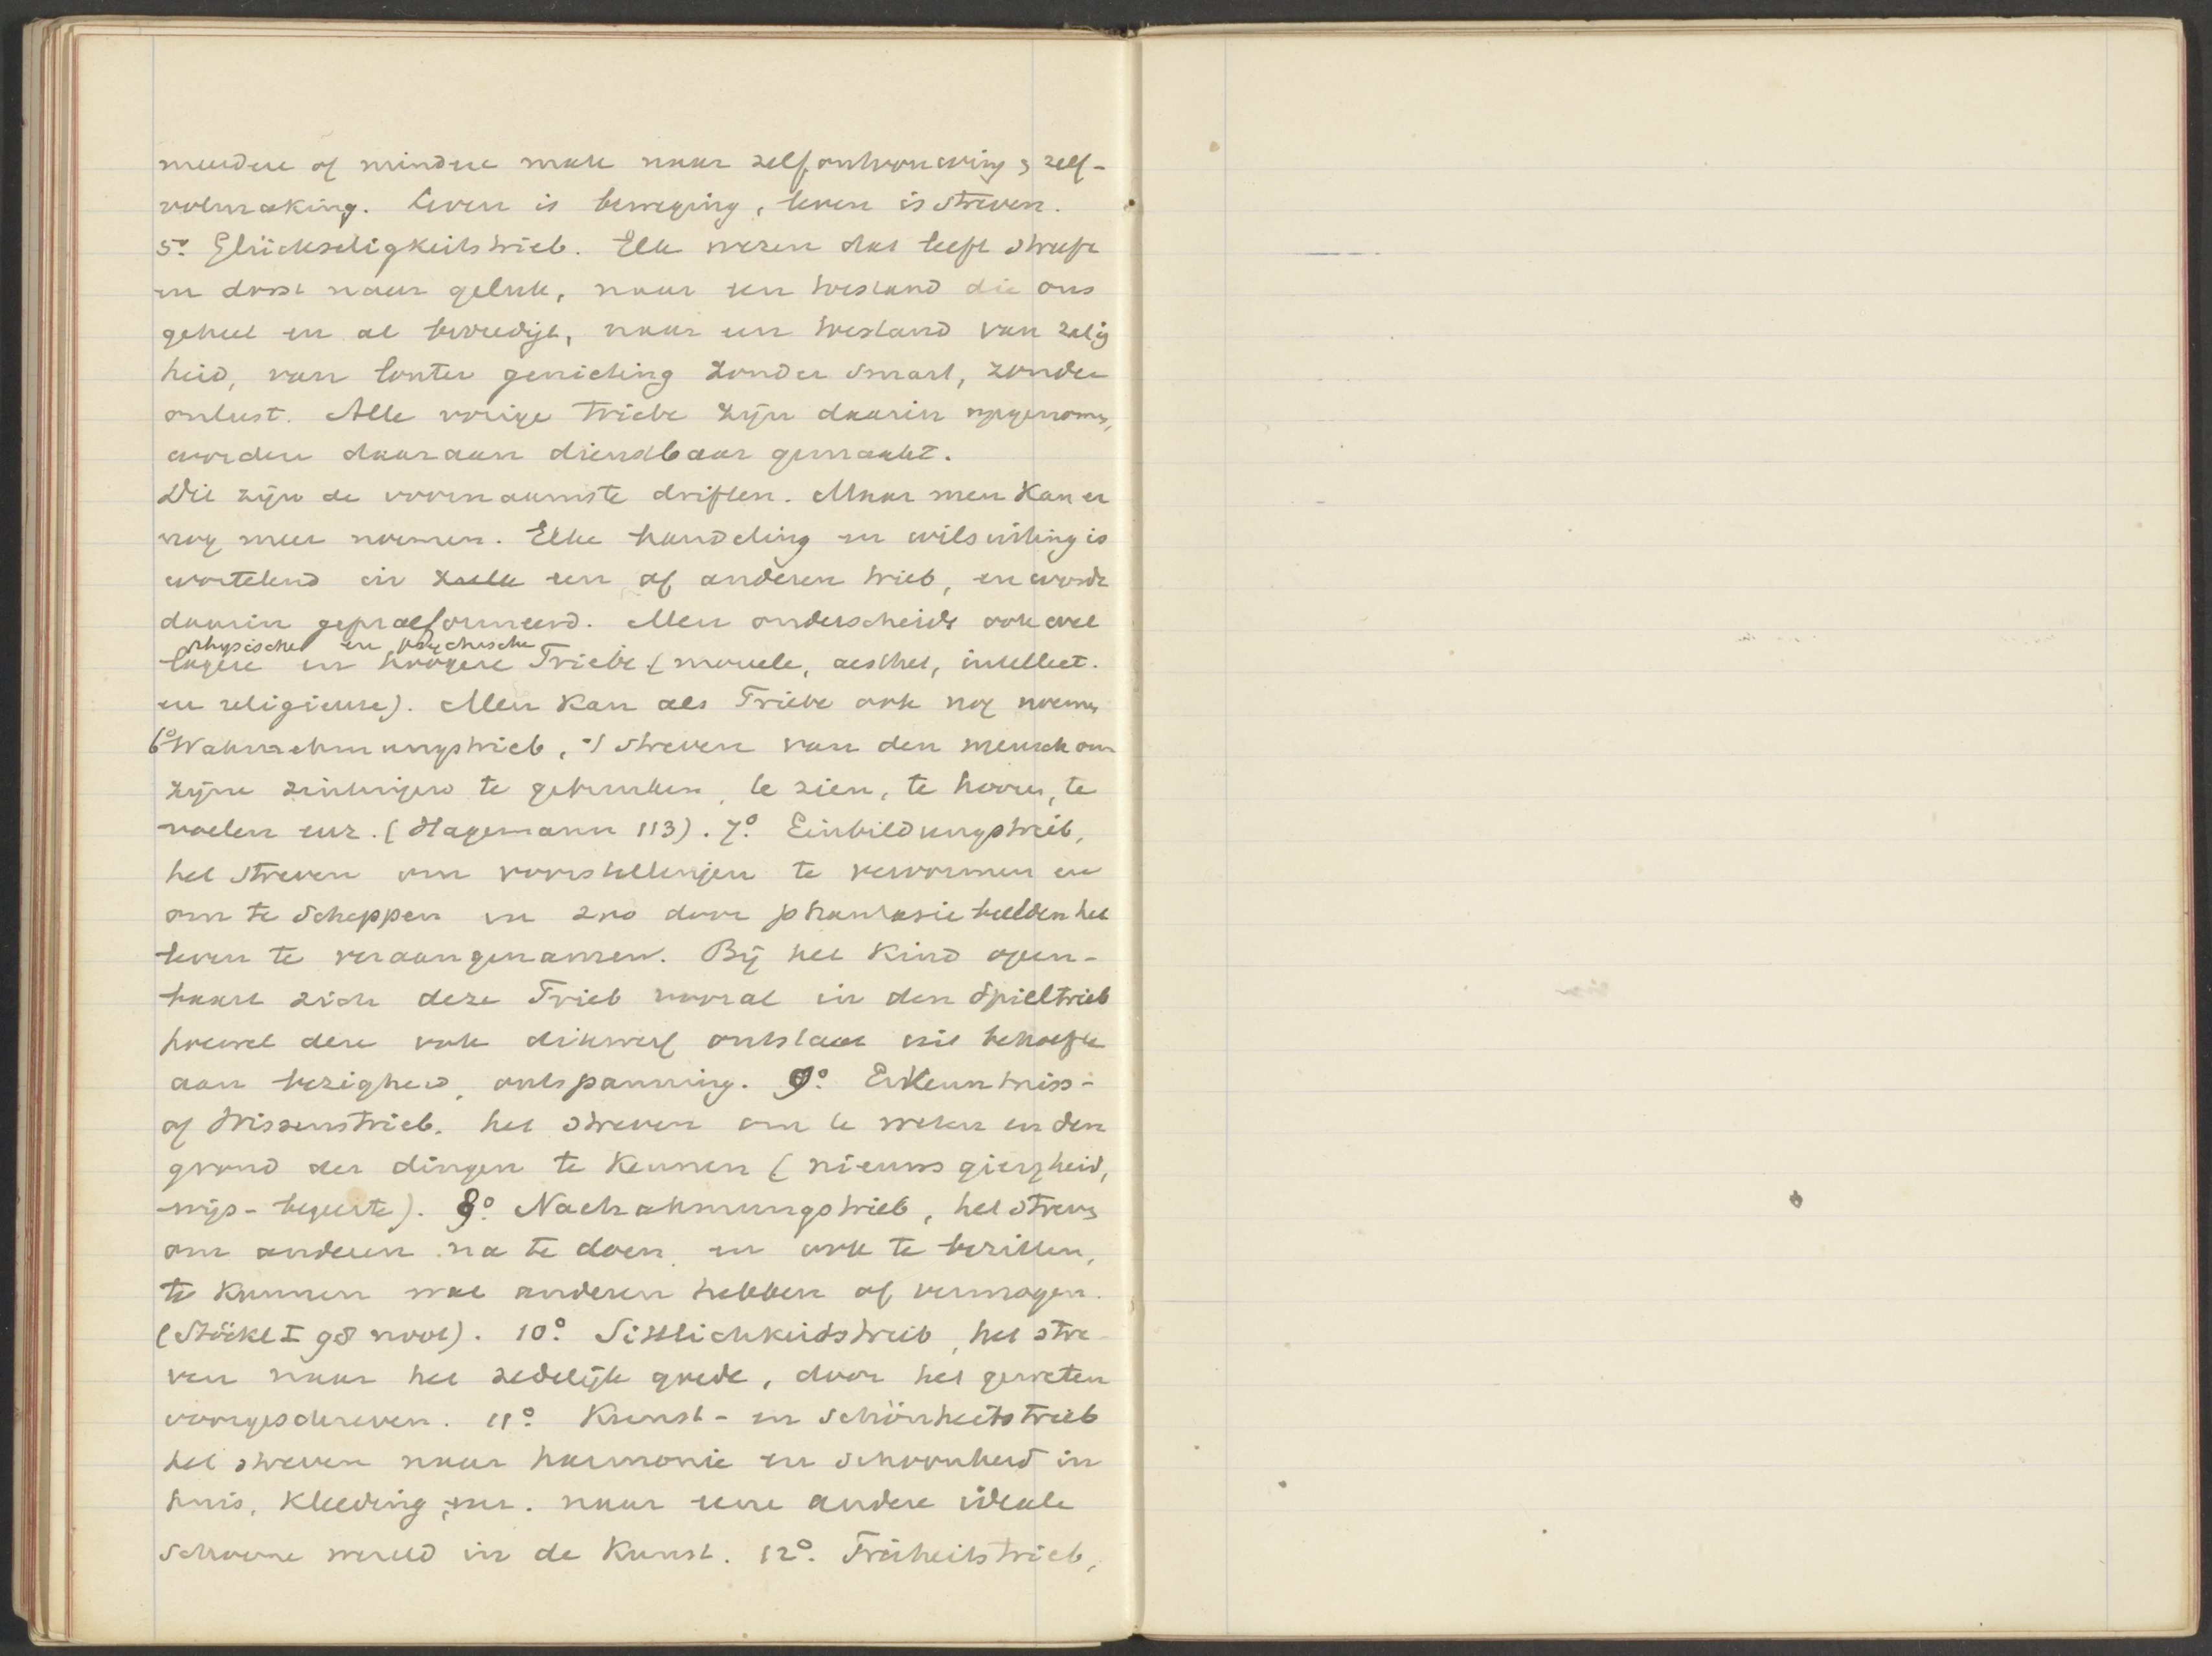 meerdere of mindere mate naar zelfontwouwing & zelf-
volmaking. Leven is beweging, leven is streven.
5o. Glückseligkeitstrieb. Elk wezen dat leeft streeft
en dorst naar geluk, naar een toestand die ons
geheel en al bevredigt, naar een toestand van zalig
heid, van louter genieting zonder smart, zonder
onlust. Alle vorige Triebe zijn daarin opgenomen,
worden daaraan dienstbaar gemaakt.
Dit zijn de voornaamste driften. Maar men kan er
nog meer noemen. Elke handeling en wilsuiting is
wortelend in een of anderen trieb, en wordt
daarin gepraeformeerd. Men onderscheidt ook wel
physische en psychische
lagere en hoogere Triebe (moreele, aesthet, intellect.
en religieuse). Men kan als Triebe ook nog noemen
6o Wahrnehmungstrieb, 't streven van den mensch om
zijne zintuigen te gebruiken, te zien, te hooren, te
voelen enz. (Hagemann 113). 7o. Einbildungstrieb,
het streven om voorstellingen te vervormen en
om te scheppen en zoo door phantasiebeelden het
leven te veraangenamen. Bij het kind open-
baart zich deze Trieb vooral in den Spieltrieb
hoewel deze ook dikwerf ontstaat uit behoefte
aan bezigheid, ontspanning. 9o. Erkenntniss-
of Wissenstrieb, het streven om te weten en den
grond der dingen te kennen (nieuwsgierigheid,
wijs-begeerte). 8o. Nachahmungstrieb, het streven
om anderen na te doen en ook te bezitten,
te kunnen wat anderen hebben of vermogen.
(Stöckl I 98 noot). 10o. Sittlichkeidstrieb, het stre-
ven naar het zedelijk goede, door het geweten
voorgeschreven. 11o. Kunst- en Schönheitstrieb
het streven naar harmonie en schoonheid in
huis, kleeding, enz. naar eene andere ideale
schoone wereld in de kunst. 12o. Freiheitstrieb,